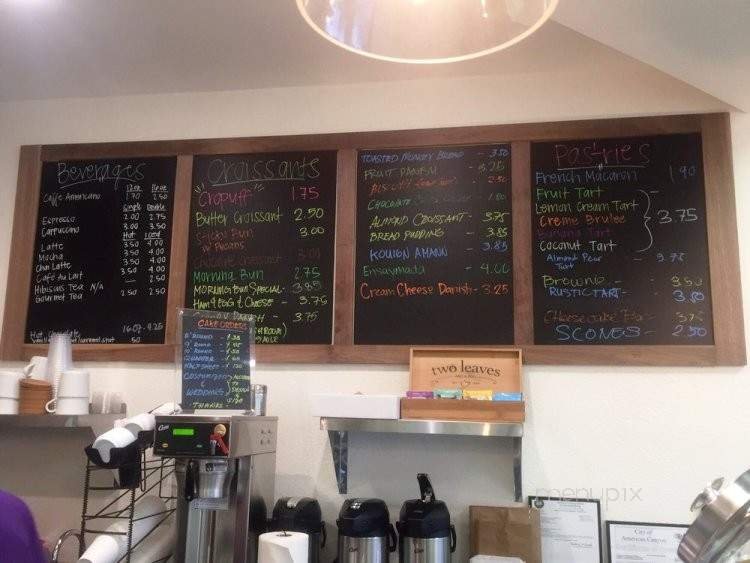 Beverages
12oz 16oz
Caffe Americano 1.70 2.50
Single Double
Espresso 2.00 2.75
Cappuccino 3.00 3.50
Hot Iced
Latte 3.50 4.00
Mocha 3.50 4.00
Chai Latte 3.50 4.00
Cafe Au Lait — 2.50
Hibiscus Tea N/A 2.50
Gourmet Tea 2.50 2.50
Hot Chocolate 16oz - 4.25
shot .50
Croissants
"Cropuff" 1.75
Butter Croissant - 2.50
w Pecans 3.00
Chocolate Croissant - 3.00
Morning Bun 2.75
Morning Bun Special - 3.95
Ham & Egg & Cheese - 3.75
Danish - 3.75
Toasted Monkey Bread - 3.50
Fruit Panini - 3.25
Biscotti
Chocolate
Almond Croissant - 3.75
Bread Pudding - 3.85
Kouign Amann - 3.85
Ensaymada - 4.00
Cream Cheese Danish - 3.25
Pastries
French Macaron 1.90
Fruit Tart
Lemon Cream Tart
Creme Brulee 3.75
Banana Tart
Coconut Tart
Almond Pear Tart - 3.75
Brownie - 3.50
Rustic Tart - 3.80
Cheesecake Bar - 3.75
Scones - 2.50
Cake Orders
Quarter
Half Sheet
&
Wedding
Thanks
two leaves
Curtis
menupix
City of
American Canyon